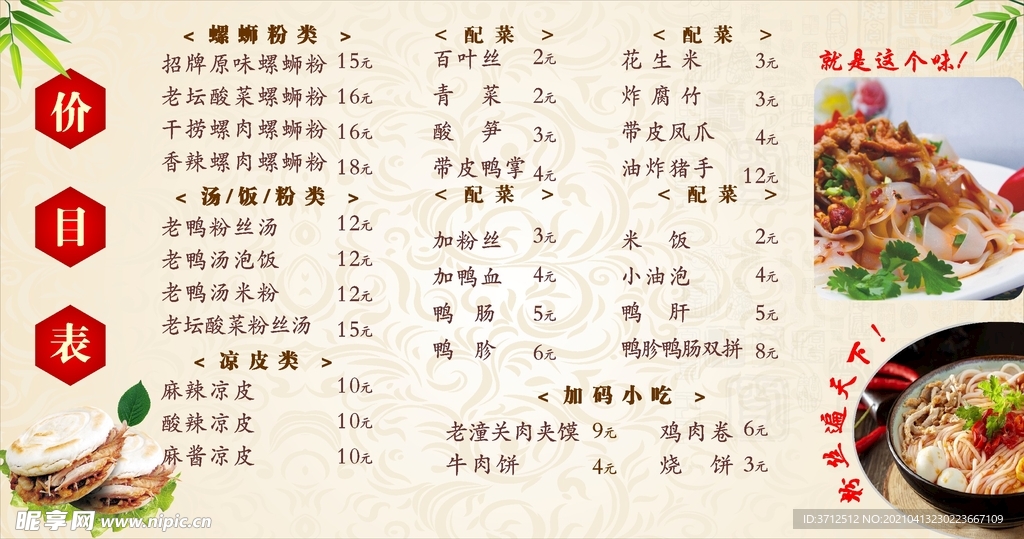 价
目
表
< 螺蛳粉类 >
招牌原味螺蛳粉 15元
老坛酸菜螺蛳粉 16元
干捞螺肉螺蛳粉 16元
香辣螺肉螺蛳粉 18元
< 汤/饭/粉类 >
老鸭粉丝汤 12元
老鸭汤泡饭 12元
老鸭汤米粉 12元
老坛酸菜粉丝汤 15元
< 凉皮类 >
麻辣凉皮 10元
酸辣凉皮 10元
麻酱凉皮 10元
< 配菜 >
百叶丝 2元
青菜 2元
酸笋 3元
带皮鸭掌 4元
< 配菜 >
加粉丝 3元
加鸭血 4元
鸭肠 5元
鸭胗 6元
< 配菜 >
花生米 3元
炸腐竹 3元
带皮凤爪 4元
油炸猪手 12元
< 配菜 >
米饭 2元
小油泡 4元
鸭肝 5元
鸭胗鸭肠双拼 8元
< 加码小吃 >
老潼关肉夹馍 9元 鸡肉卷 6元
牛肉饼 4元 烧饼 3元
就是这个味!
粉丝遍天下!
昵享网 www.nipic.cn
ID:3712512 NO:20210413230223667109